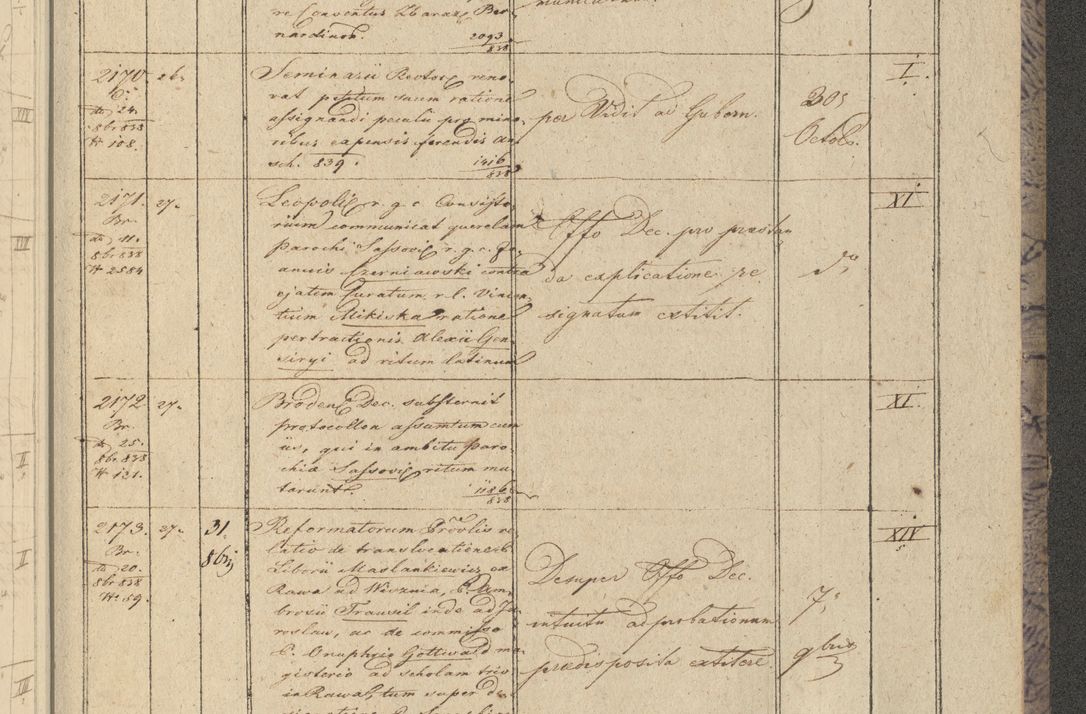 re Conventus Zbaraz. Ber
nardinor.
2093
838
2170 26.
24.
8br 838
N 108.
Seminarii Rector reno
vat petitum suum ratione
assignandi peculii pro mino
ribus expensis ferendis an
sch. 839.
1416
838
per Vidit ad Gubern.
30
Octob.
I.
2171. 27.
Br.
11.
8br 838
N 2584
Leopol. r. g. c. Consisto
rium communicat querelam
Parochi Sassovi r. g. c. Jo
annis Czerniawski contra
ejatem Curatum r. l. Vincen
tium Mikiska ratione
pertractionis Alexii Gon
siryi ad ritum latinum
Offo Dec. pro præstan
da explicatione
signatum extitit.
XI
2172 27.
Br.
25.
8br. 838
N 131.
Broden. Dec. substernit
protocollon assumtum cum
iis, qui in ambitu Paro
chiæ Sassovi ritum mu
tarunt.
1186
838
XI.
2173. 27. 31.
Br. 8bris
20.
8br 838
N. 59.
Reformatorum Provlis re
latio de translocatione P.
Liborii Maslankiewicz ex
Rawa ad Wisznia, P. Am
brosii Trausil inde ad Ja
roslau, ac de commisso
P. Onuphrio Gottwald ma
gisterio ad scholam triv.
in Rawa, tum super de
Desuper Offo Dec.
intuitu adprobationum
prædisposita extitere.
7
9bris
XIV